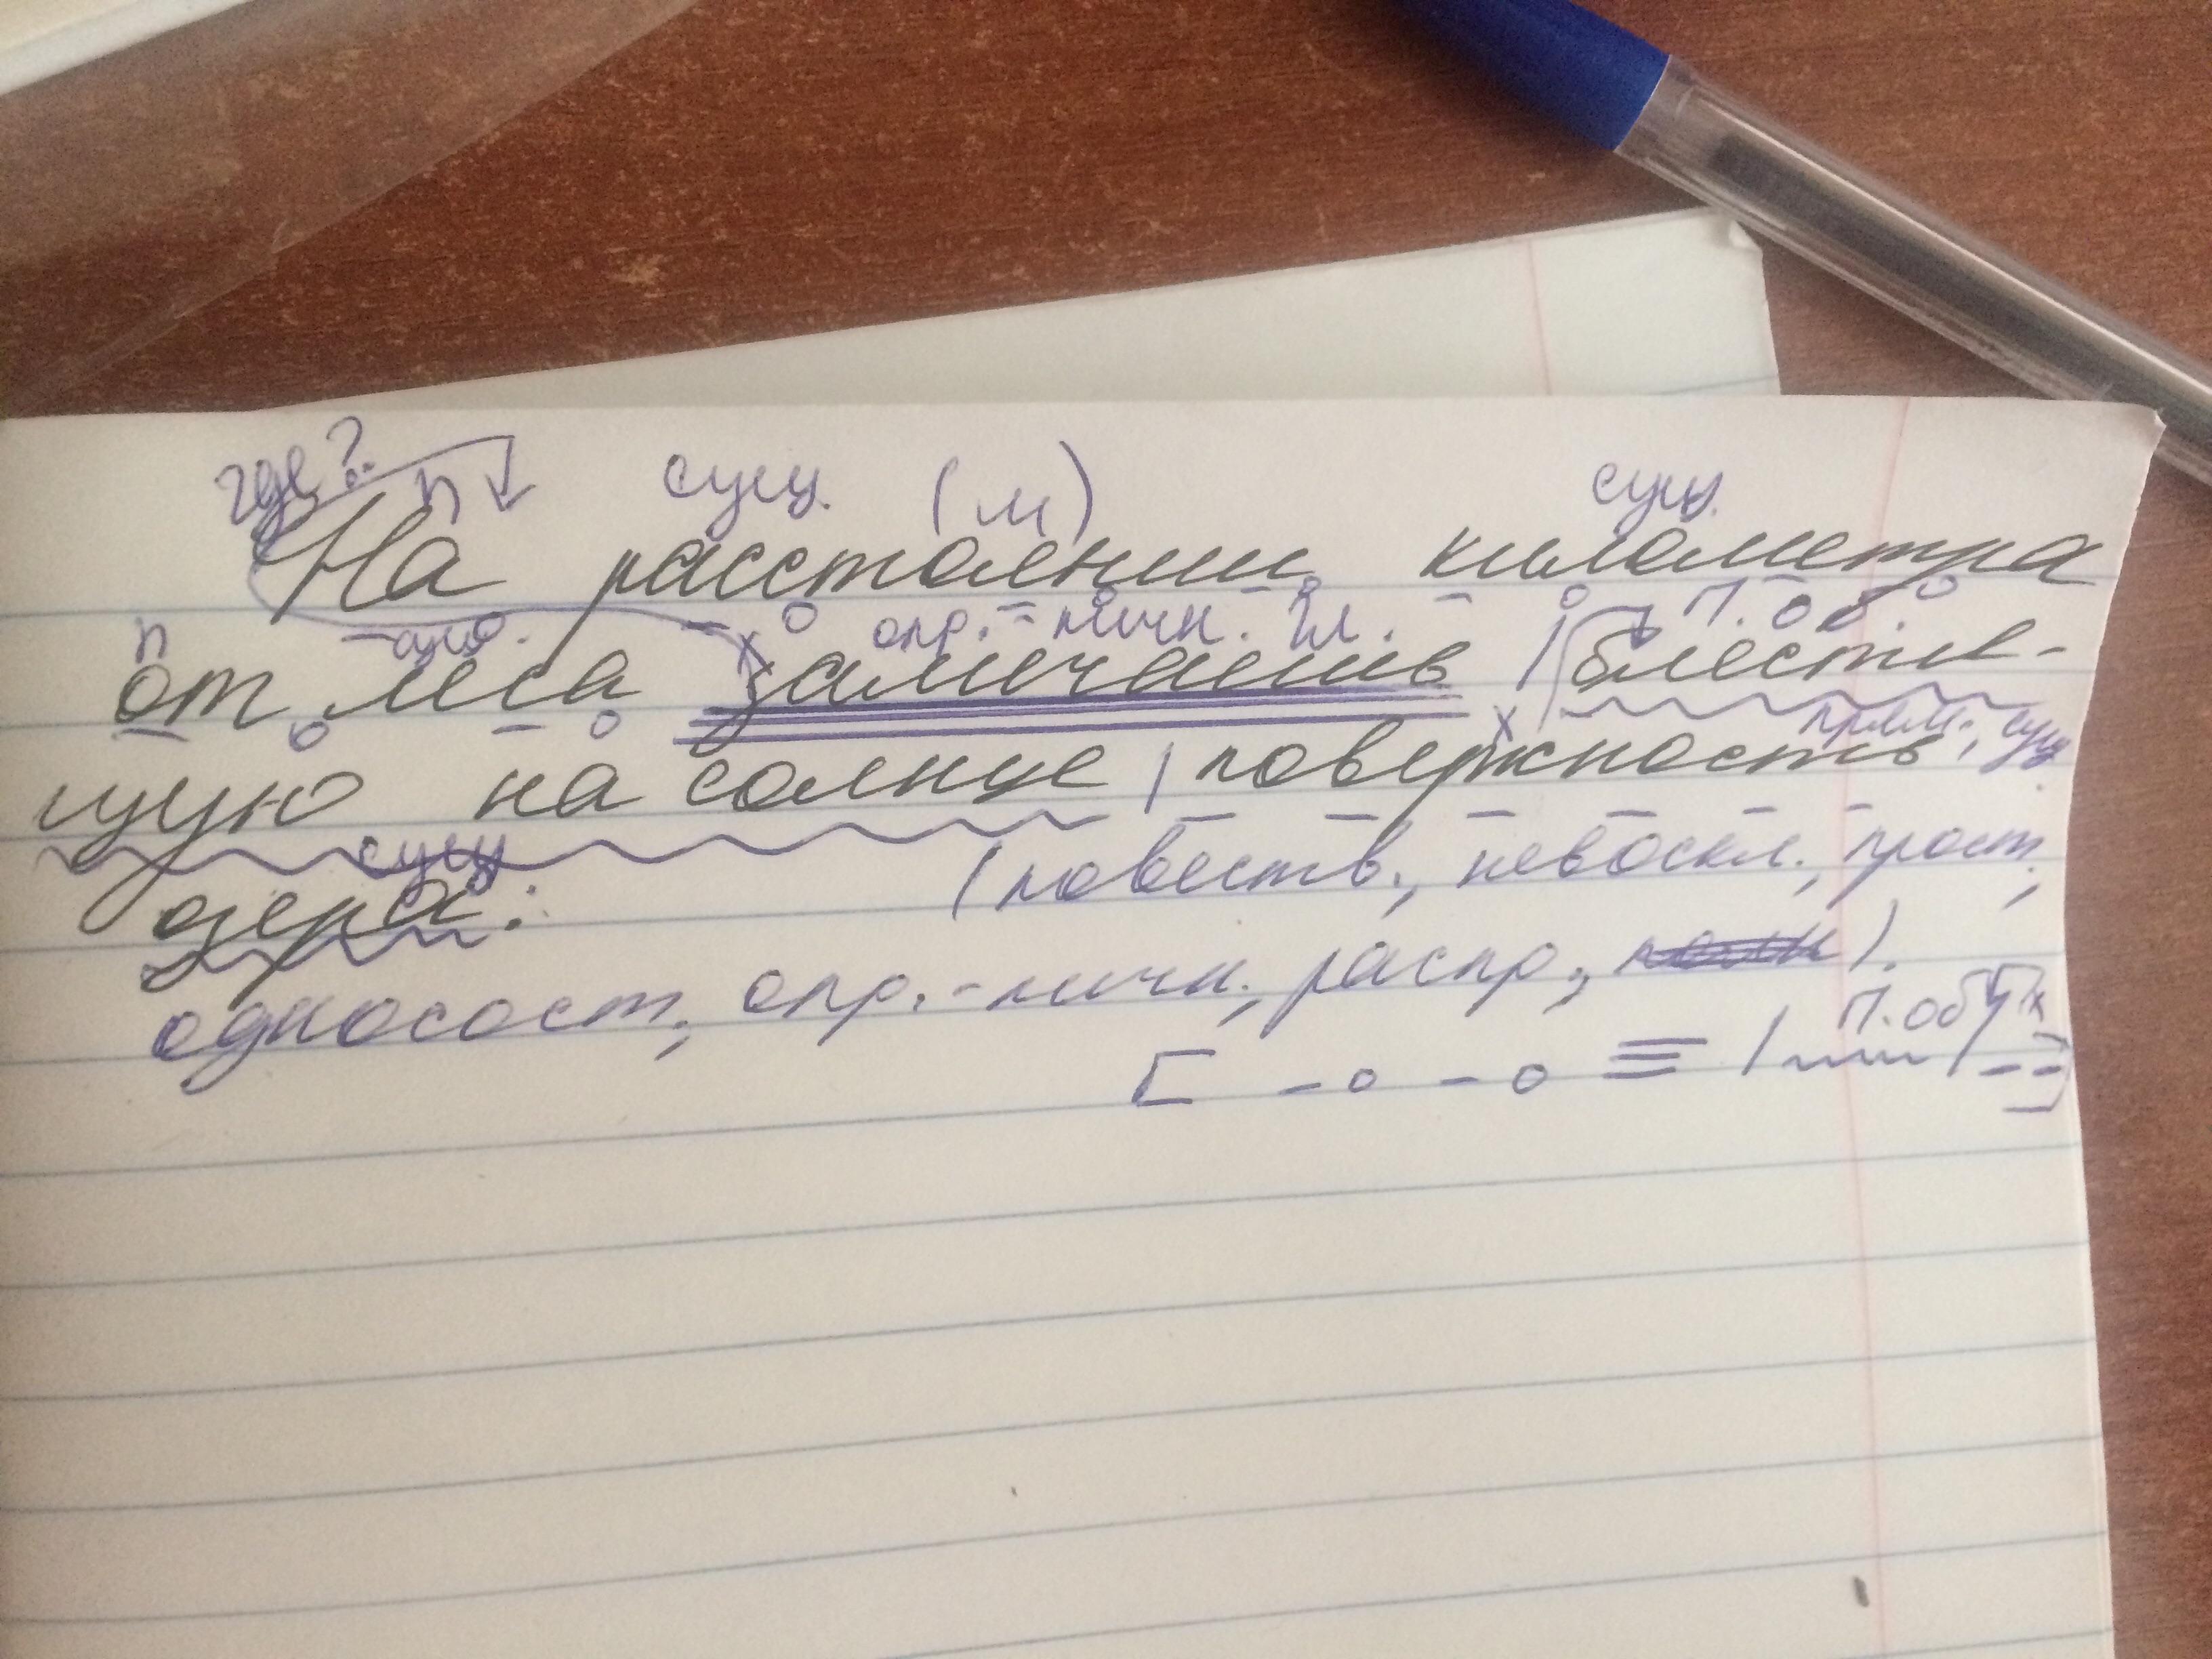 где? п сущ. (м) сущ.
На расстоянии километра
п сущ. опр.-личн. гл. П. об.
от леса замечаешь | блестя-
прям., сущ
щую на солнце | поверхность
сущ (повеств., невоскл., прост,
озера.
односост, опр.-личн., распр.,).
П. об